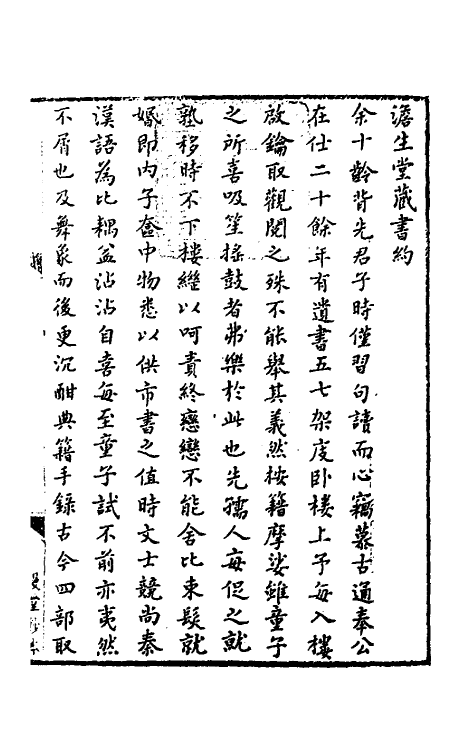 澹生堂藏書約
余十齡背先君子時僅習句讀而心竊慕古通奉公
在仕二十餘年有遺書五七架庋卧樓上予每入樓
啟鑰取觀閱之殊不能舉其義然按籍摩娑雖童子
之所喜吸笙搖鼓者弗樂於此也先孺人每促之就
塾移時不下樓繼以呵責終戀戀不能舍比束髮就
婚即內子奩中物悉以供市書之值時文士競尚秦
漢語為比耦益沾沾自喜每至童子試不前亦夷然
不屑也及舞象而後更沉酣典籍手錄古今四部取